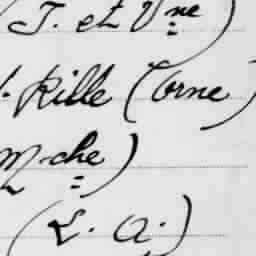 (I. et Vne)
Rille (Orne)
M.che)
(L. A.)